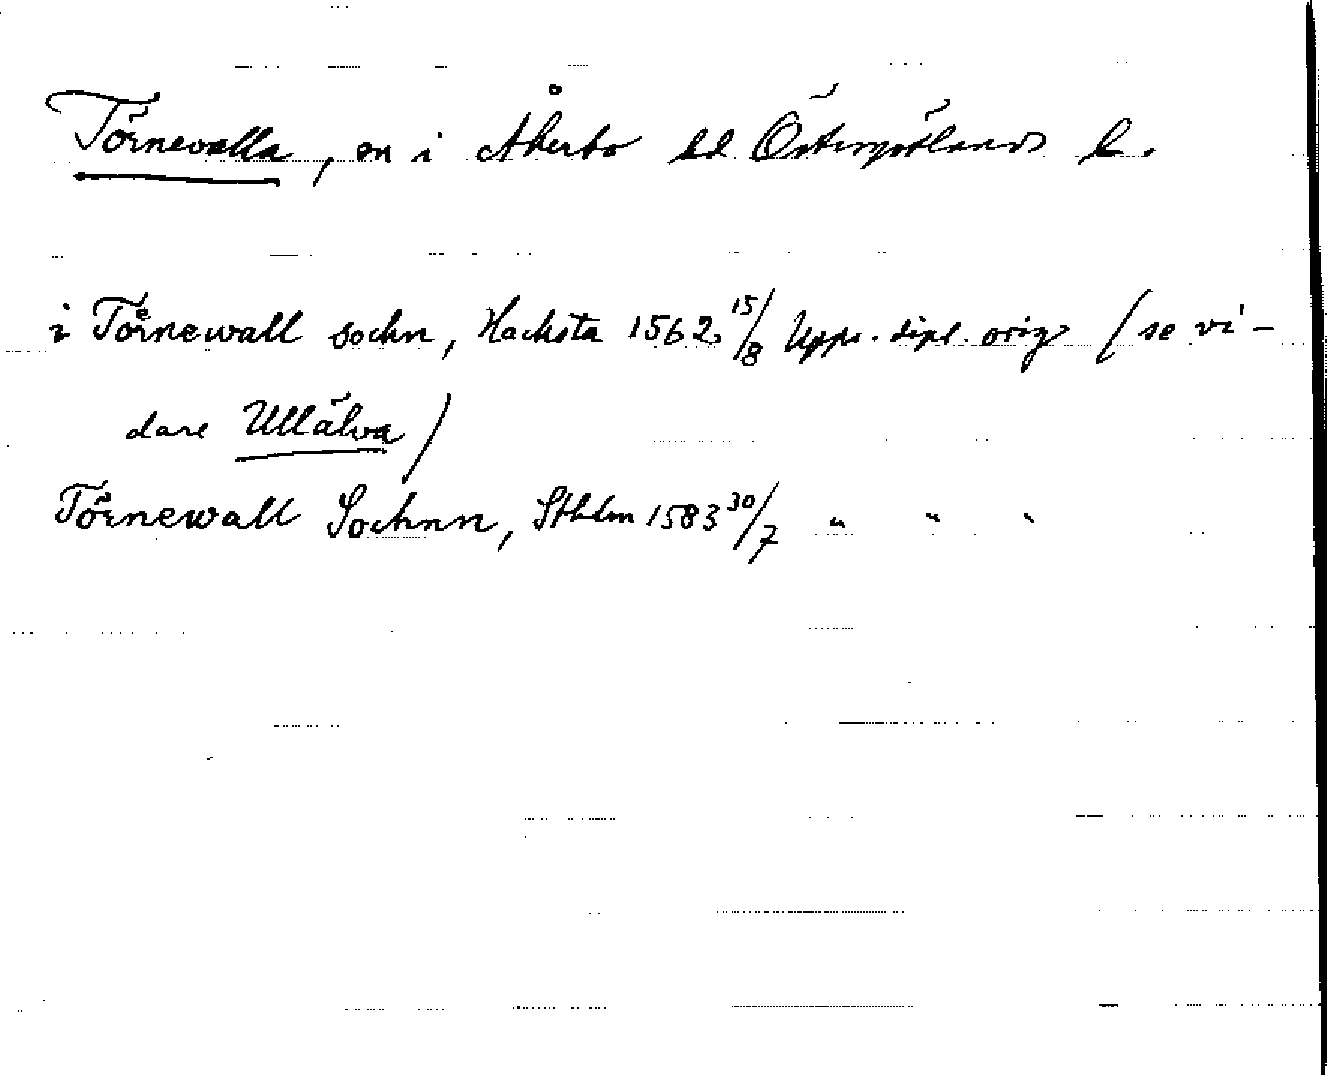 Törnevalla, sn i Åkerbo hd Östergötlands l.
i Törnewall sochn, Hacksta 1562 15/8 Upps. dipl. orig (se vi-
dare Ullälva)
Törnewall Sochnn, Sthlm 1583 30/7 " " "